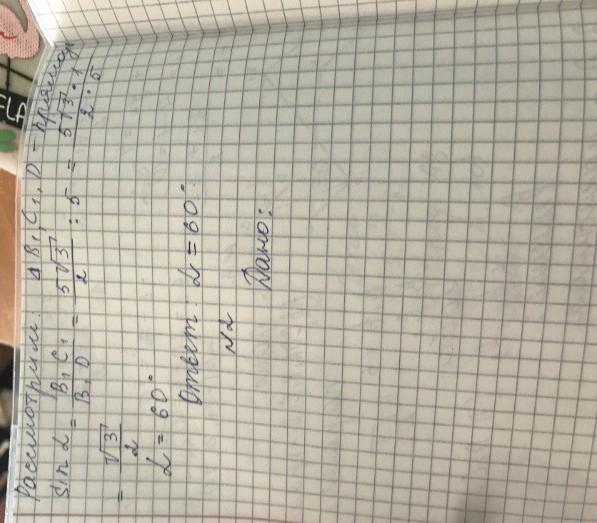 Рассмотрим: Δ B₁, C₁, D – прямоуг
sin α = B₁C₁/B₁D = 5√3/2 : 5 = 5√3 · 1/2 · 5
= √3/2
α = 60°
Ответ: α = 60°.
N2
Дано:
FLA